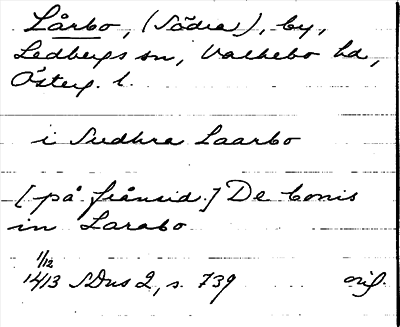 Lårbo, (Södra), by,
Ledbergs sn, Valkebo hd,
Österg. l.
i Sudhra Laarbo
[på frånsid.] De bonis
in Larabo
1/12
1413 SDns 2, s. 739 orig.